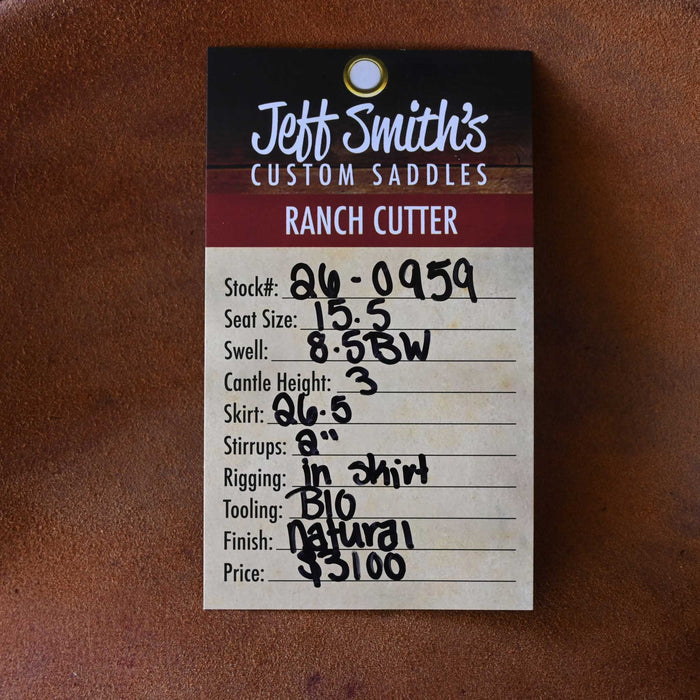 Jeff Smith's
CUSTOM SADDLES
RANCH CUTTER
Stock#: 26-0959
Seat Size: 15.5
Swell: 8.5BW
Cantle Height: 3
Skirt: 26.5
Stirrups: 2"
Rigging: in skirt
Tooling: B10
Finish: natural
Price: $3100